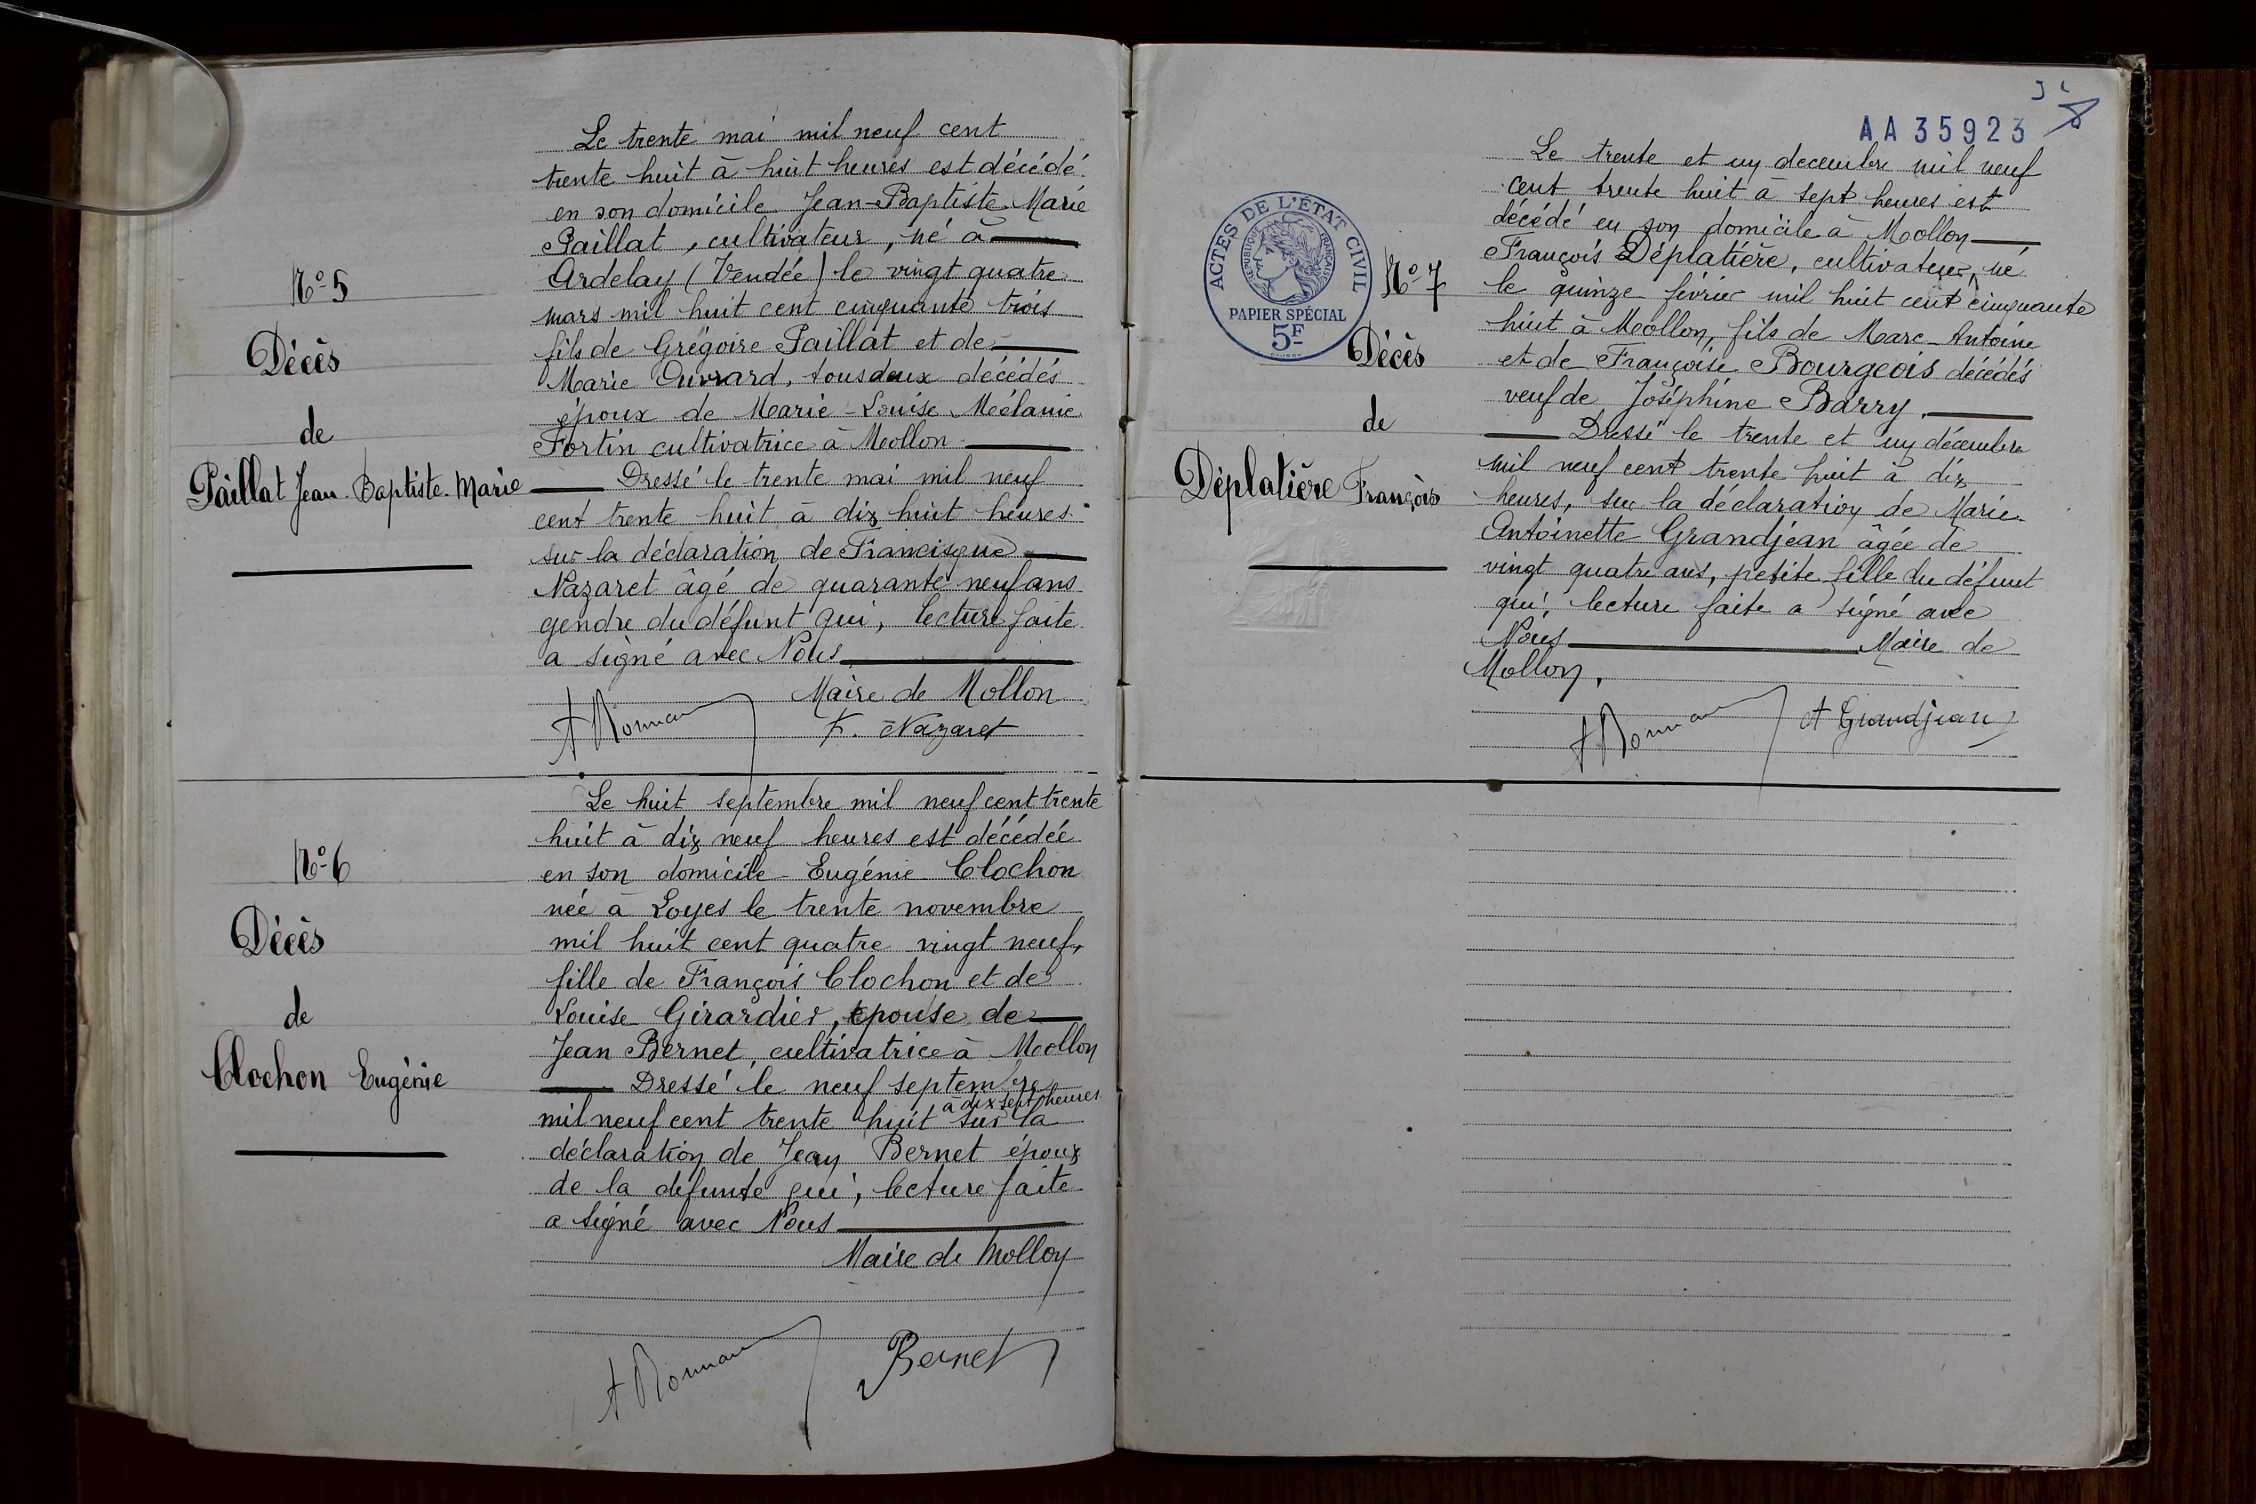 N° 5
Décès
de
Paillat Jean-Baptiste-Marie
Le trente mai mil neuf cent
trente huit à huit heures est décédé
en son domicile Jean-Baptiste-Marie
Paillat, cultivateur, né à
Ardelay (Vendée) le vingt quatre
mars mil huit cent cinquante trois
fils de Grégoire Paillat et de
Marie Ouvrard, tous deux décédés
époux de Marie-Louise Mélanie
Fortin cultivatrice à Mollon
Dressé le trente mai mil neuf
cent trente huit à dix huit heures
sur la déclaration de Francisque
Nazaret âgé de quarante neuf ans
gendre du défunt qui, lecture faite
a signé avec Nous
Maire de Mollon
F. Nazaret
N° 6
Décès
de
Clochon Eugénie
Le huit septembre mil neuf cent trente
huit à dix neuf heures est décédée
en son domicile Eugénie Clochon
née à Loyes le trente novembre
mil huit cent quatre vingt neuf,
fille de François Clochon et de
Louise Girardier, épouse de
Jean Bernet, cultivatrice à Mollon
Dressé le neuf septembre
à dix sept heures
mil neuf cent trente huit sur la
déclaration de Jean Bernet époux
de la défunte qui, lecture faite
a signé avec Nous
Maire de Mollon
Bernet
AA 35923
ACTES DE L'ÉTAT CIVIL
RÉPUBLIQUE FRANÇAISE
PAPIER SPÉCIAL
5F
N° 7
Décès
de
Déplatière François
Le trente et un decembre mil neuf
cent trente huit à sept heures est
décédé en son domicile à Mollon
François Déplatière, cultivateur, né
le quinze février mil huit cent cinquante
huit à Mollon, fils de Marc-Antoine
et de Françoise Bourgeois décédés
veuf de Joséphine Barry.
Dressé le trente et un décembre
mil neuf cent trente huit à dix
heures, sur la déclaration de Marie-
Antoinette Grandjean âgée de
vingt quatre ans, petite fille du défunt
qui, lecture faite a signé avec
Nous Maire de
Mollon.
A Grandjean